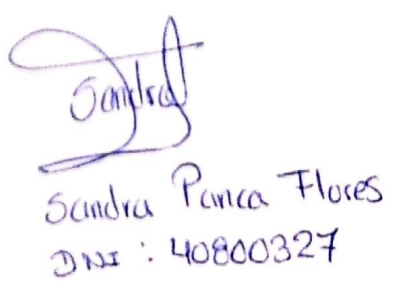 Sandra
Sandra Panca Flores
DNI : 40800327